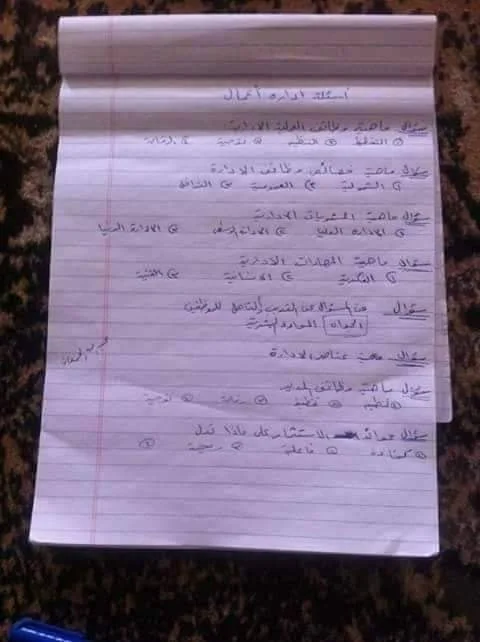 أسئلة ادارة أعمال
سؤال ماهية وظائف العملية الادارية
① التخطيط ② التنظيم ③ توجية ④ رقابة
سؤال ماهية خصائص وظائف الادارة
① الشمولية ② العمومية ③
سؤال ماهية المستويات الادارية
① الادارة العليا ② الادارة الوسطى ③ الادارة الدنيا
سؤال ماهية المهارات الادارية
① الفكرية ② الانسانية ③ الفنية
سؤال من المسؤال عن التدريب والتأهيل للموظفين
الجواب الموارد البشرية
سؤال ماهية عناصر الادارة
سؤال ماهية وظائف المدير
① تنظيم ② تخطيط ③ رقابة ④ توجية
سؤال عوائد الاستثمار على ماذا تدل
① كفاءة ② فاعلية ③ ربحية ④